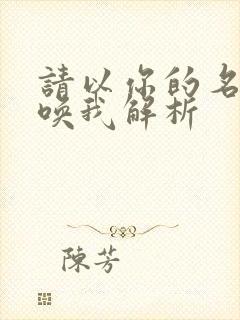 請以你的名
喚我解析
陳芳